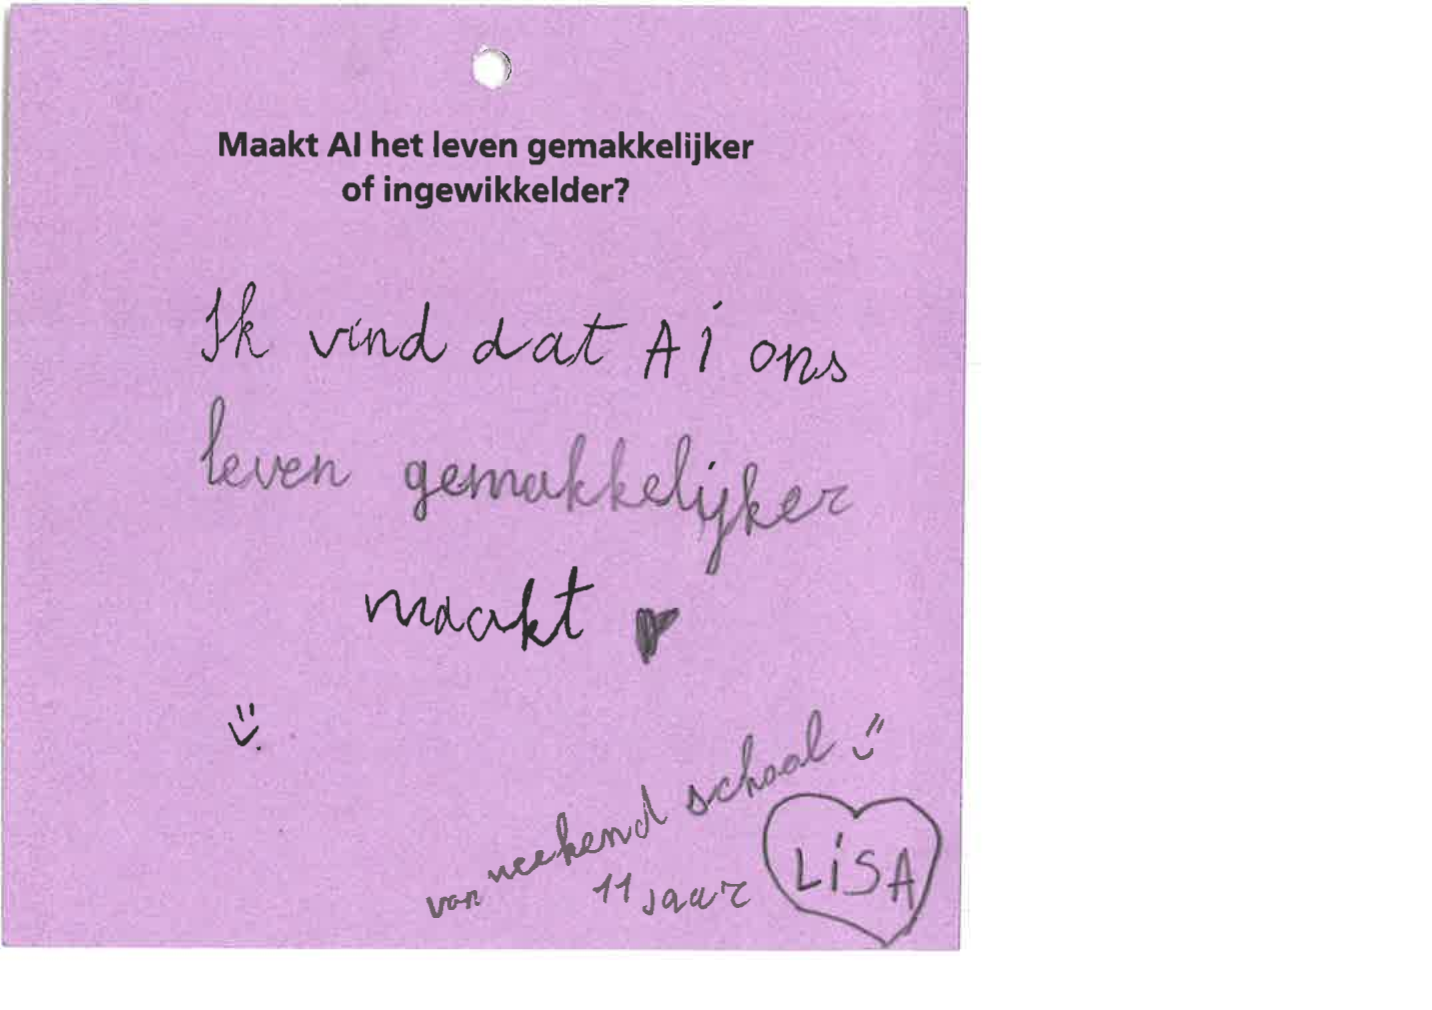 Maakt AI het leven gemakkelijker
of ingewikkelder?
Ik vind dat Ai ons
leven gemakkelijker
maakt
van weekend school
11 jaar
LiSA